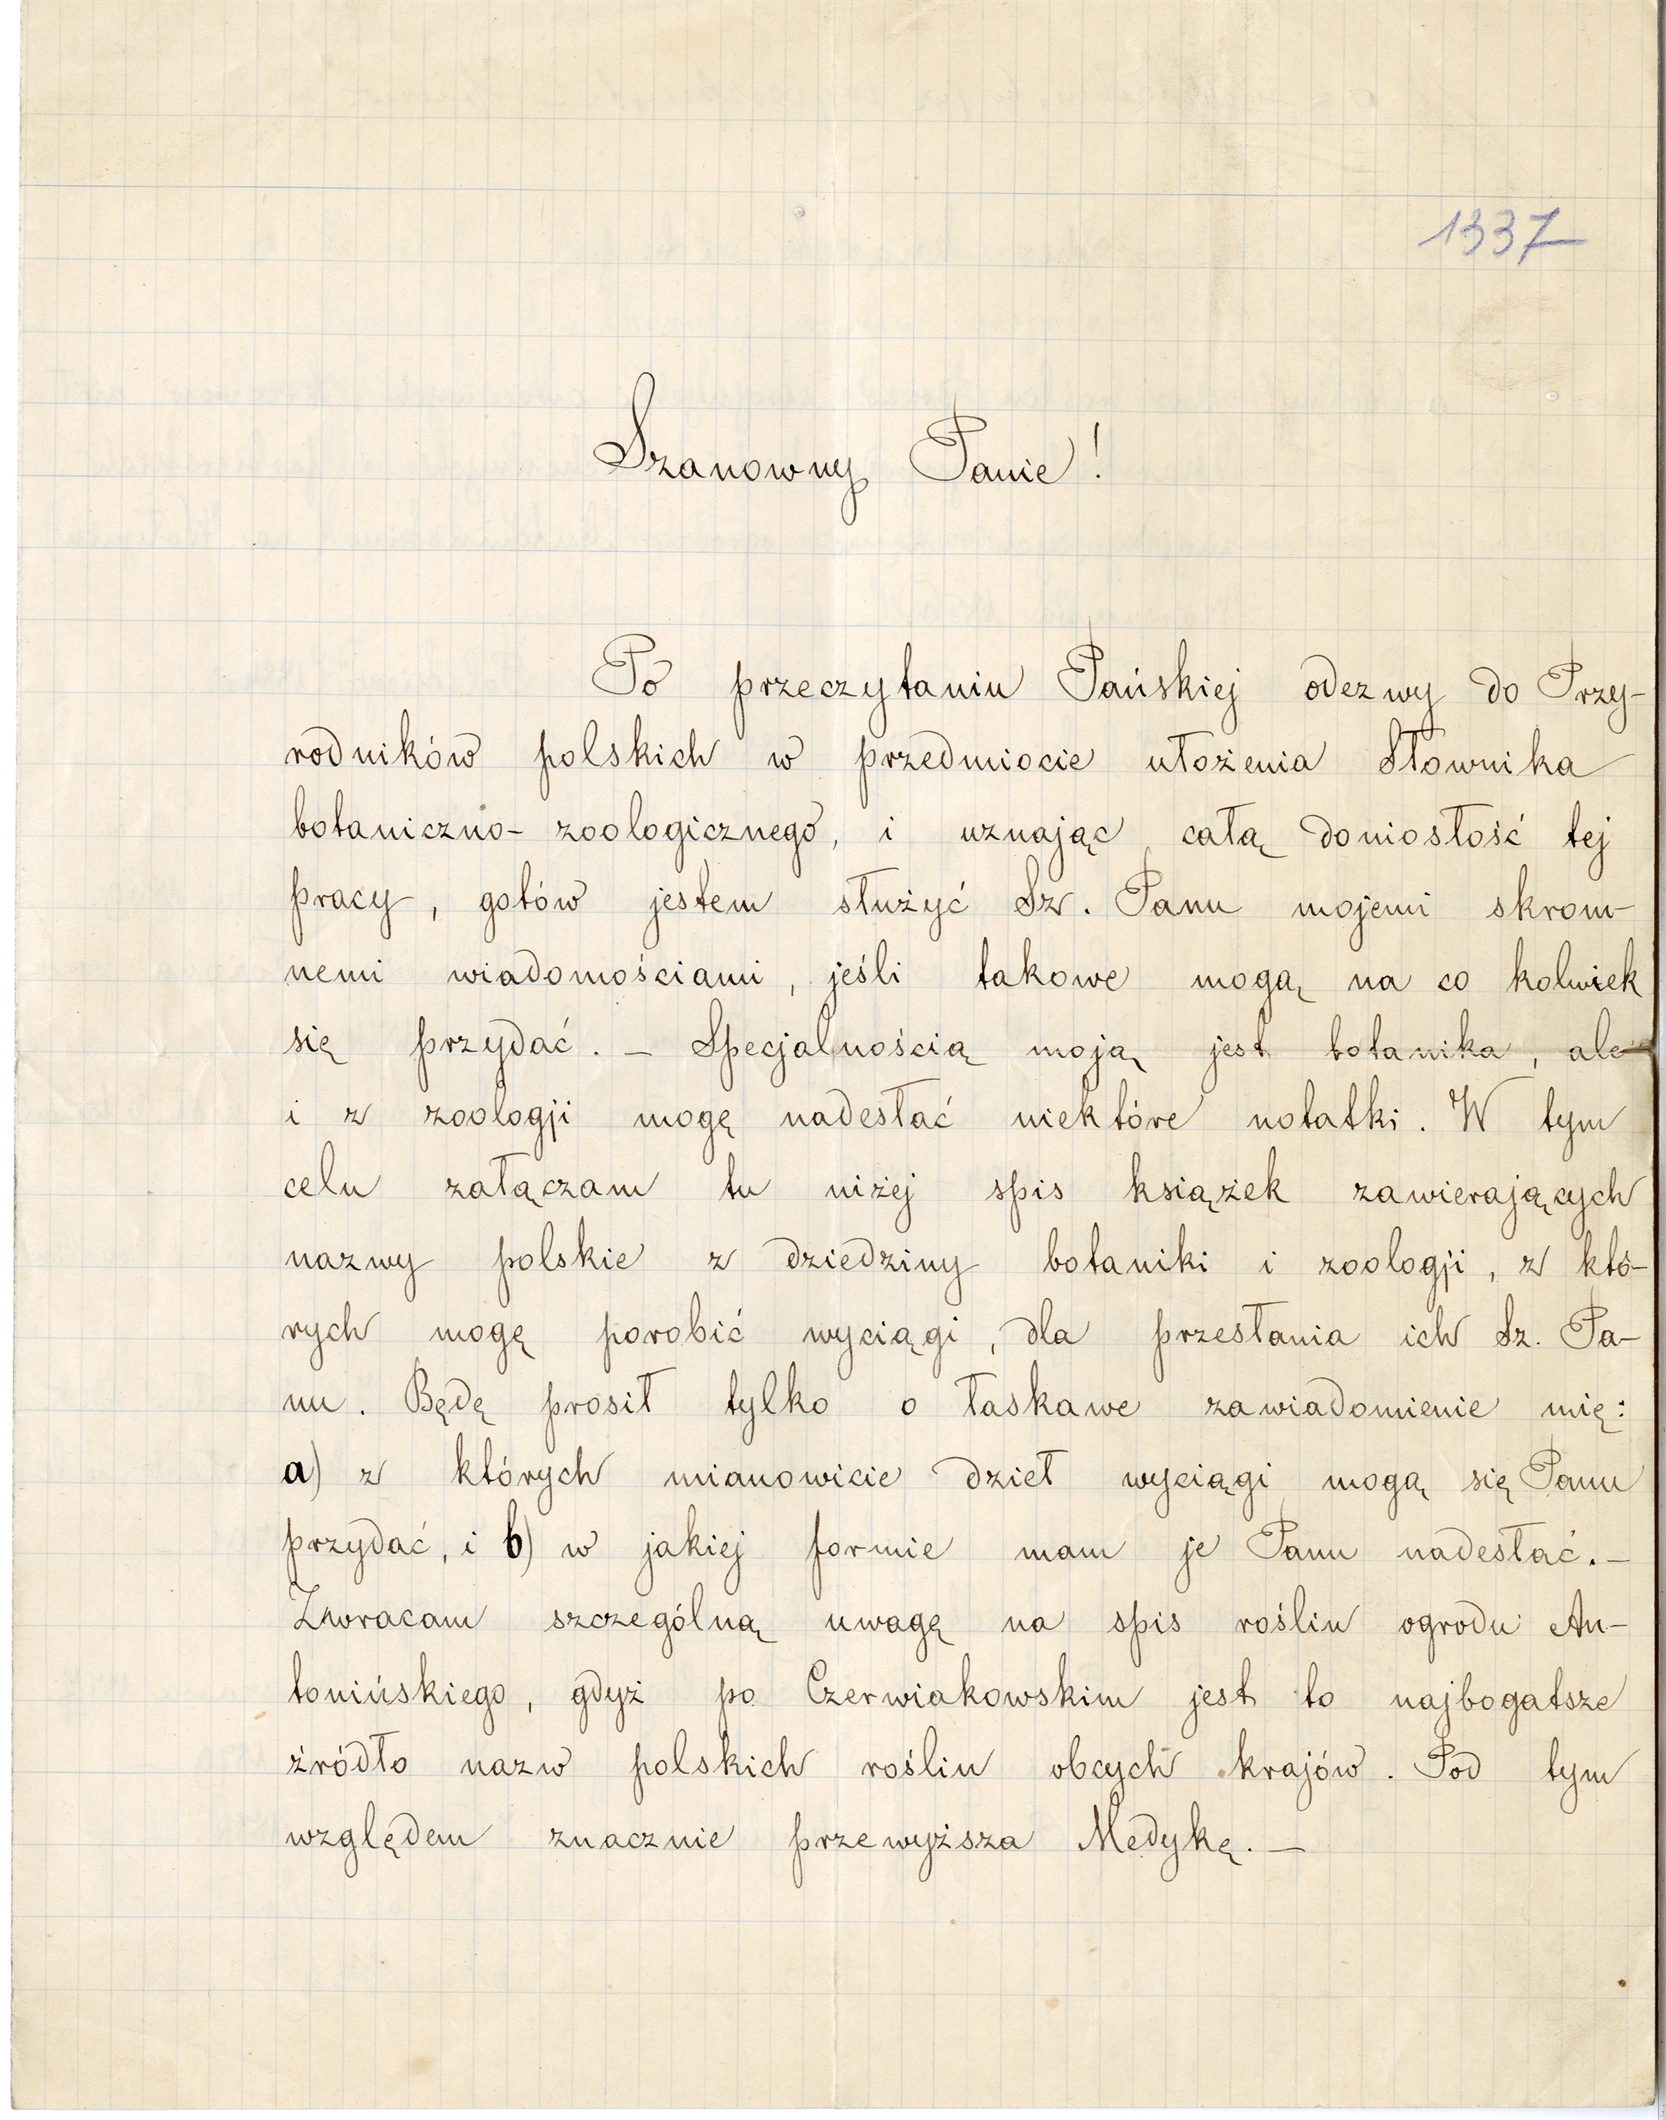 1337
Szanowny Panie!
Po przeczytaniu Pańskiej odezwy do Przy-
rodników polskich w przedmiocie ułożenia Słownika
botaniczno-zoologicznego, i uznając całą doniosłość tej
pracy, gotów jestem służyć Sz. Panu mojemi skrom-
nemi wiadomościami, jeśli takowe mogą na co kolwiek
się przydać. – Specjalnością moją jest botanika, ale
i z zoologji mogę nadesłać niektóre notatki. W tym
celu załączam tu niżej spis książek zawierających
nazwy polskie z dziedziny botaniki i zoologji, z któ-
rych mogę porobić wyciągi, dla przesłania ich Sz. Pa-
nu. Będę prosił tylko o łaskawe zawiadomienie mię:
a) z których mianowicie dzieł wyciągi mogą się Panu
przydać, i b) w jakiej formie mam je Panu nadesłać. –
Zwracam szczególną uwagę na spis roślin ogrodu An-
tonińskiego, gdyż po Czerwiakowskim jest to najbogatsze
źródło nazw polskich roślin obcych krajów. Pod tym
względem znacznie przewyższa Medykę. –